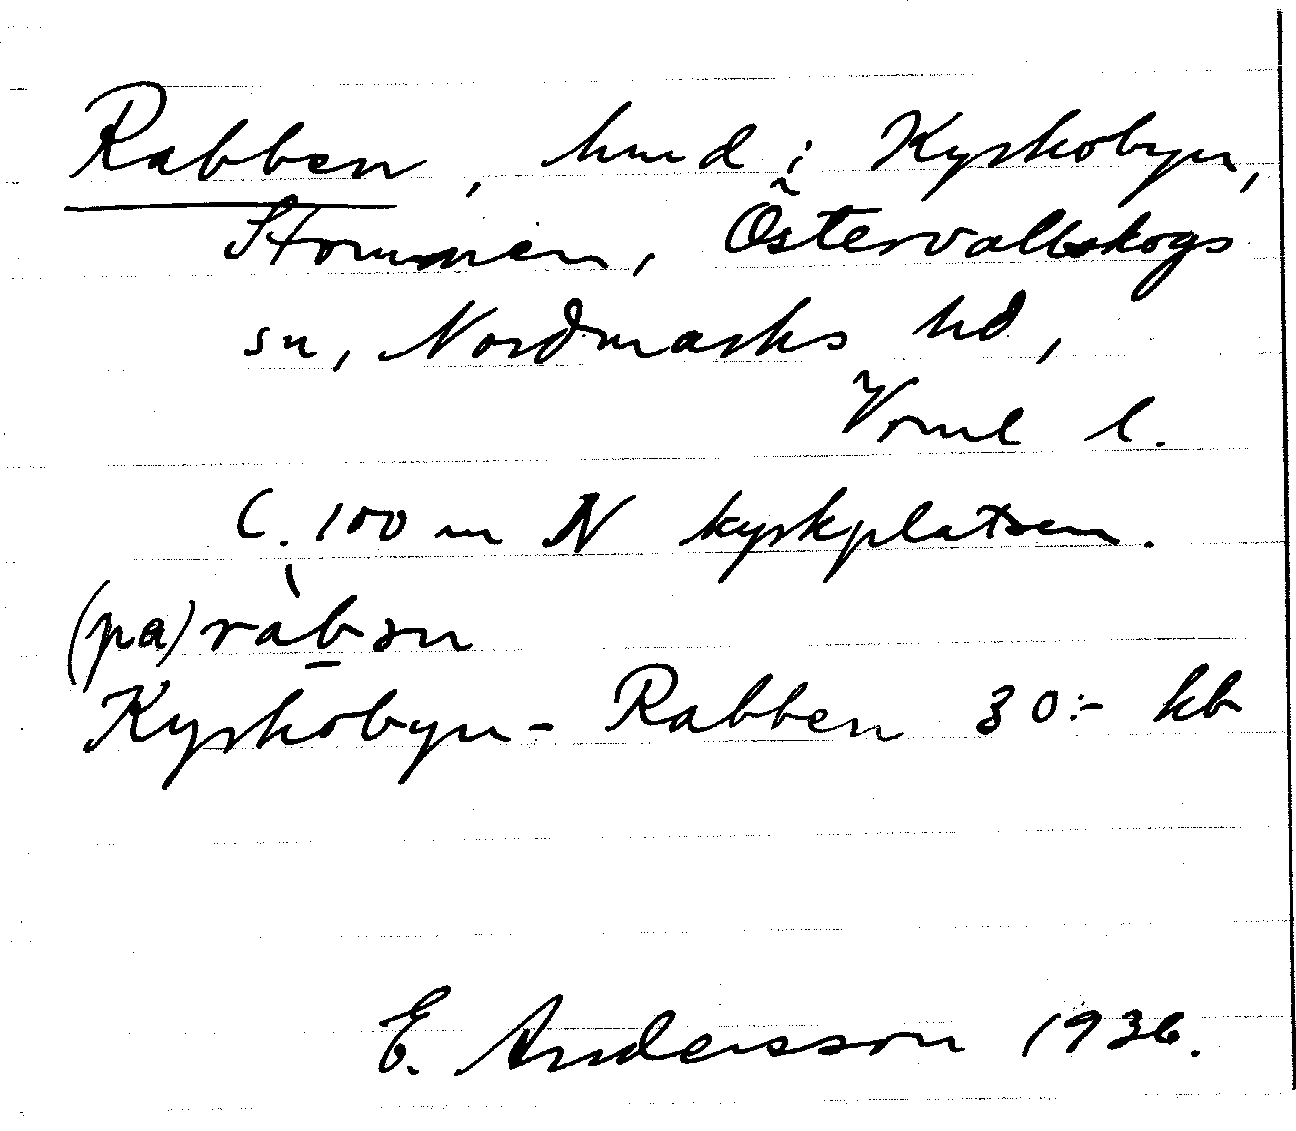 Rabben, hmd i Kyrkobyn,
Stommen, Östervallskogs
sn, Nordmarks hd,
Vrml l.
C. 100 m N kyrkplatsen.
(pa) ràbən
Kyrkobyn - Rabben 30:- kb
E. Andersson 1936.